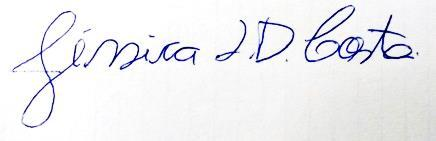 Jéssica J.D. Costa.